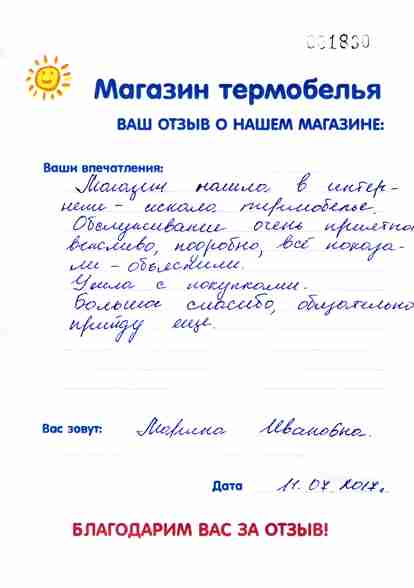 001830
Магазин термобелья
ВАШ ОТЗЫВ О НАШЕМ МАГАЗИНЕ:
Ваши впечатления:
Магазин нашла в интер-
нете - искала термобелье.
Обслуживание очень приятно
вежливо, подробно, всё показа-
ли - объяснили.
Ушла с покупками.
Большое спасибо, обязательно
прийду еще.
Вас зовут: Марина Ивановна.
Дата 11.07.2017г.
БЛАГОДАРИМ ВАС ЗА ОТЗЫВ!